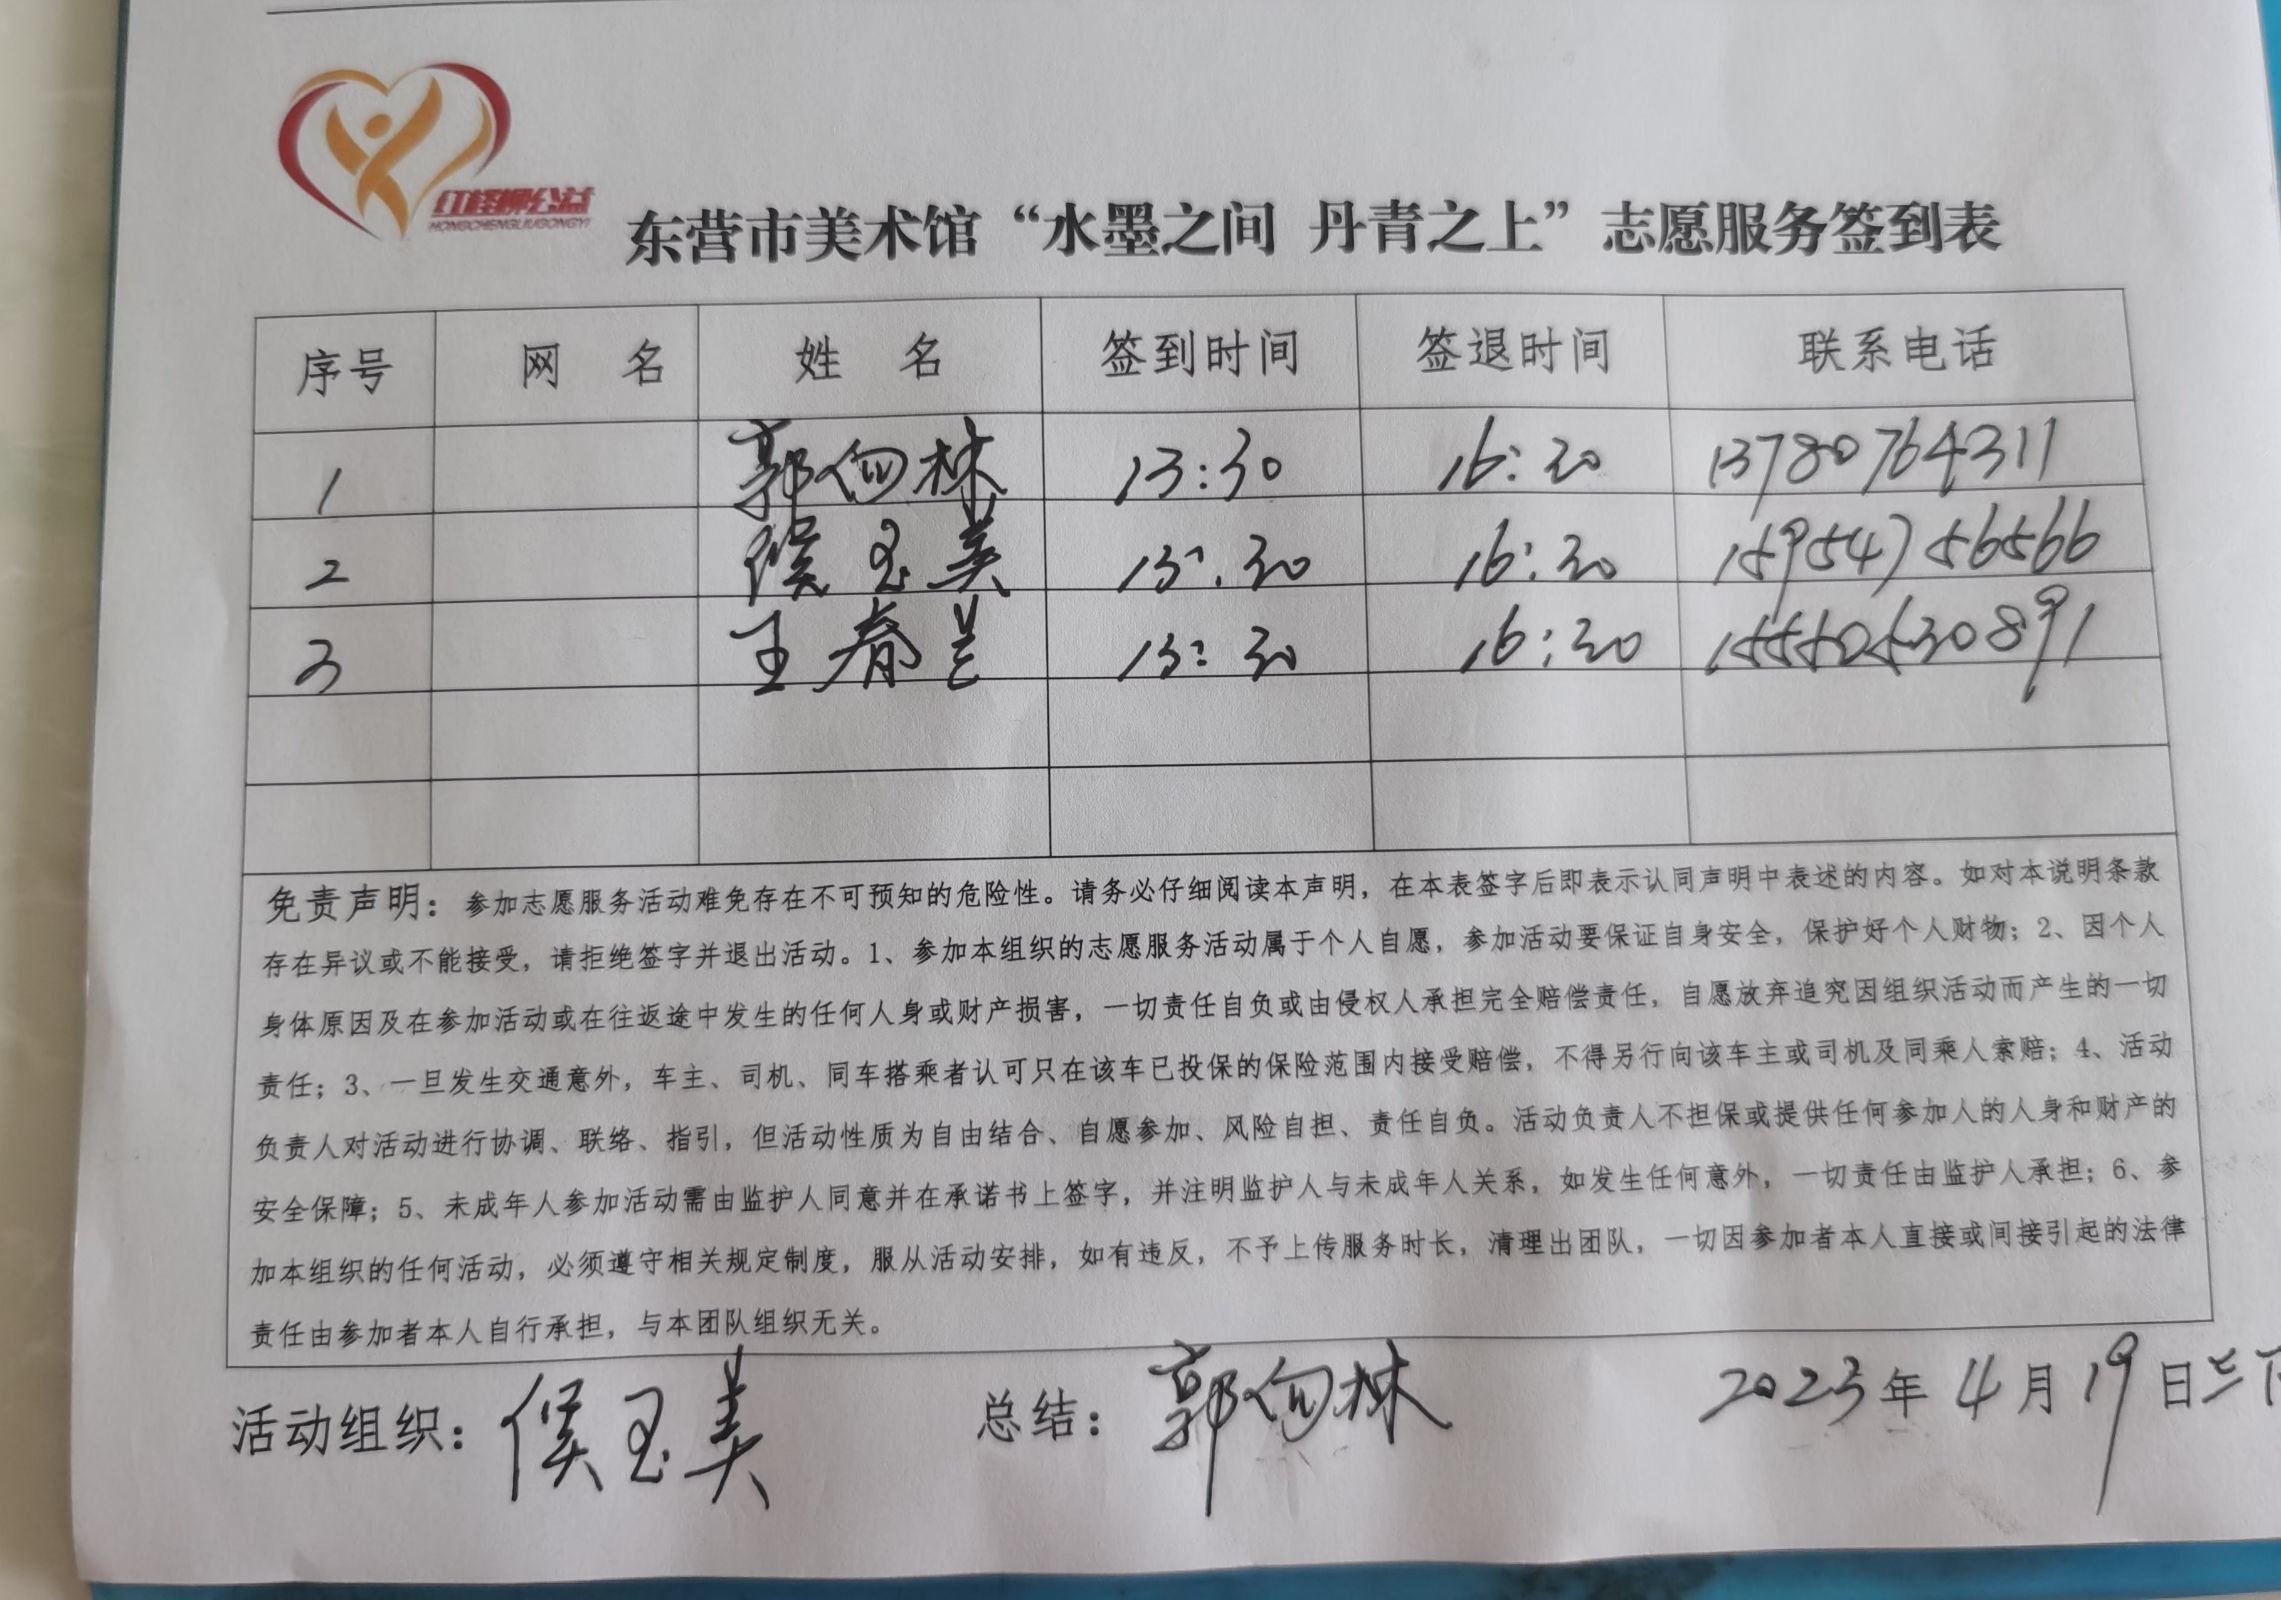 红柽柳公益
HONGCHENGLIUGONGYI
东营市美术馆“水墨之间 丹青之上”志愿服务签到表
序号 网 名 姓 名 签到时间 签退时间 联系电话
1 郭向林 13:30 16:30 13780764311
2 侯玉美 13:30 16:30 15954756566
3 王春兰 13:30 16:30 15550530891
免责声明：参加志愿服务活动难免存在不可预知的危险性。请务必仔细阅读本声明，在本表签字后即表示认同声明中表述的内容。如对本说明条款
存在异议或不能接受，请拒绝签字并退出活动。1、参加本组织的志愿服务活动属于个人自愿，参加活动要保证自身安全，保护好个人财物；2、因个人
身体原因及在参加活动或在往返途中发生的任何人身或财产损害，一切责任自负或由侵权人承担完全赔偿责任，自愿放弃追究因组织活动而产生的一切
责任；3、一旦发生交通意外，车主、司机、同车搭乘者认可只在该车已投保的保险范围内接受赔偿，不得另行向该车主或司机及同乘人索赔；4、活动
负责人对活动进行协调、联络、指引，但活动性质为自由结合、自愿参加、风险自担、责任自负。活动负责人不担保或提供任何参加人的人身和财产的
安全保障；5、未成年人参加活动需由监护人同意并在承诺书上签字，并注明监护人与未成年人关系，如发生任何意外，一切责任由监护人承担；6、参
加本组织的任何活动，必须遵守相关规定制度，服从活动安排，如有违反，不予上传服务时长，清理出团队，一切因参加者本人直接或间接引起的法律
责任由参加者本人自行承担，与本团队组织无关。
活动组织：侯玉美 总结：郭向林 2023年4月19日三下